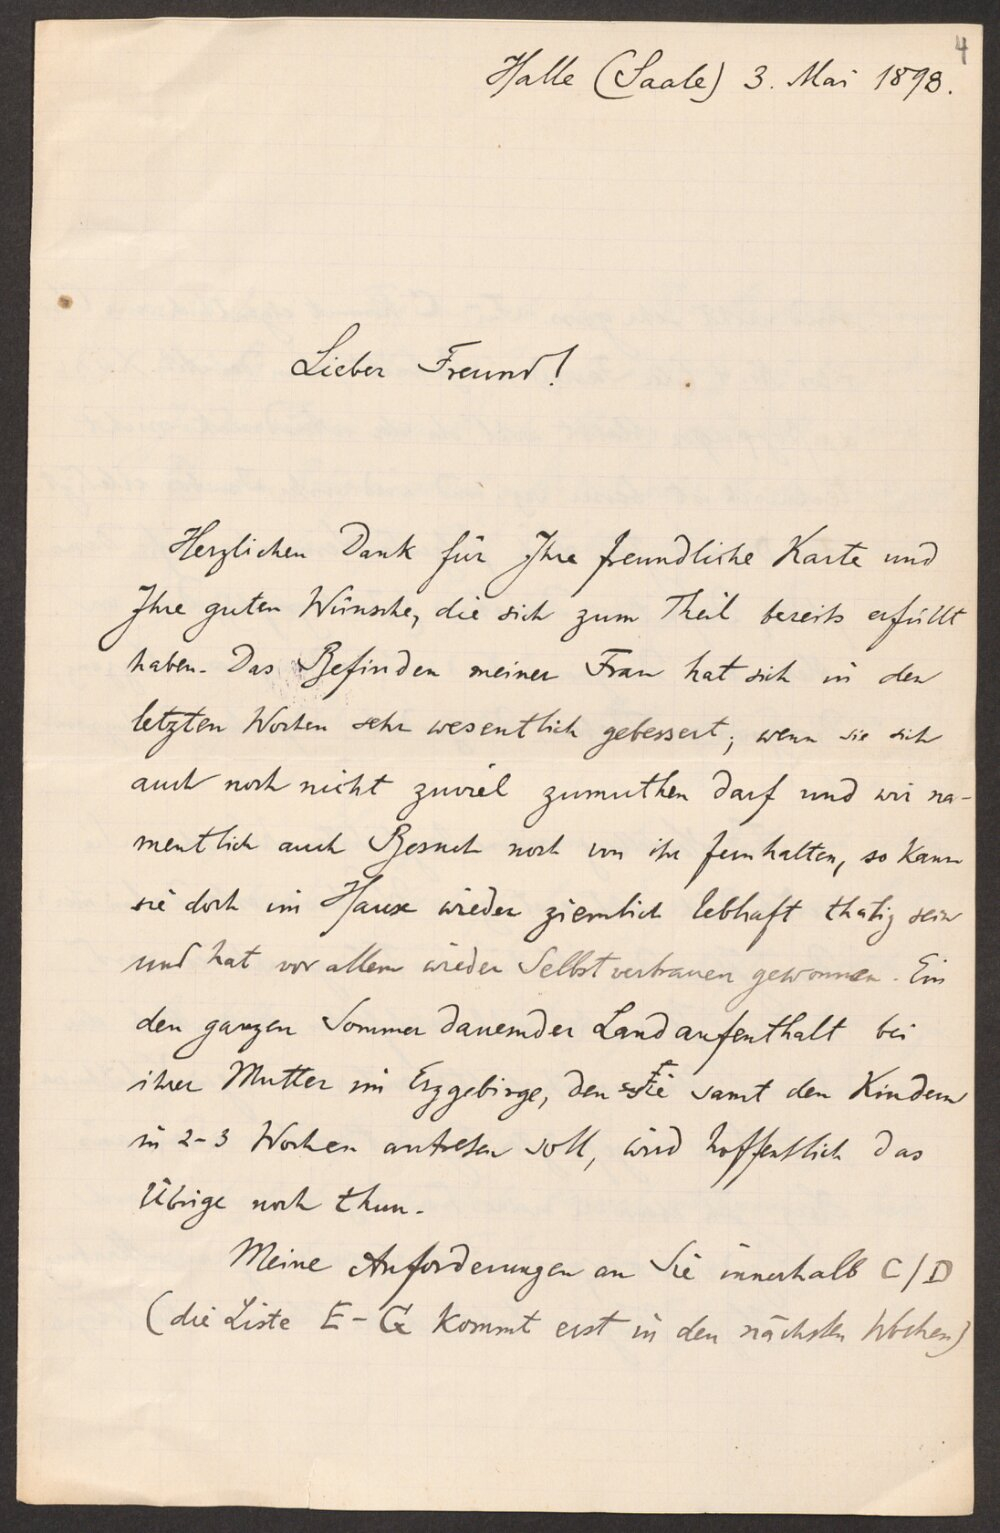 4
Halle (Saale) 3. Mai 1898.
Lieber Freund!
Herzlichen Dank für Ihre freundliche Karte und
Ihre guten Wünsche, die sich zum Theil bereits erfüllt
haben. Das Befinden meiner Frau hat sich in den
letzten Wochen sehr wesentlich gebessert; wenn sie sich
auch noch nicht zuviel zumuthen darf und wir na-
mentlich auch Besuch noch von ihr fernhalten, so kann
sie doch im Hause wieder ziemlich lebhaft thätig sein
und hat vor allem wieder Selbstvertrauen gewonnen. Ein
den ganzen Sommer dauernder Landaufenthalt bei
ihrer Mutter im Erzgebirge, den sie samt den Kindern
in 2-3 Wochen antreten soll, wird hoffentlich das
Übrige noch thun.
Meine Anforderungen an Sie innerhalb C/D
(die Liste E-G kommt erst in den nächsten Wochen)